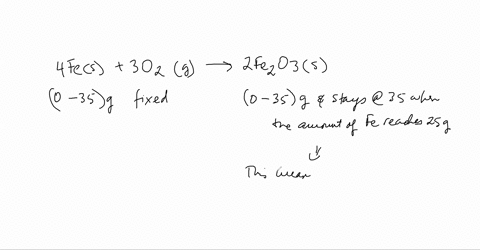 4Fe(s) + 3O₂ (g) → 2Fe₂O3(s)
(0 - 35)g fixed (0 - 35)g & stays @ 35 when
the amount of Fe reaches 25g
⇓
This mean